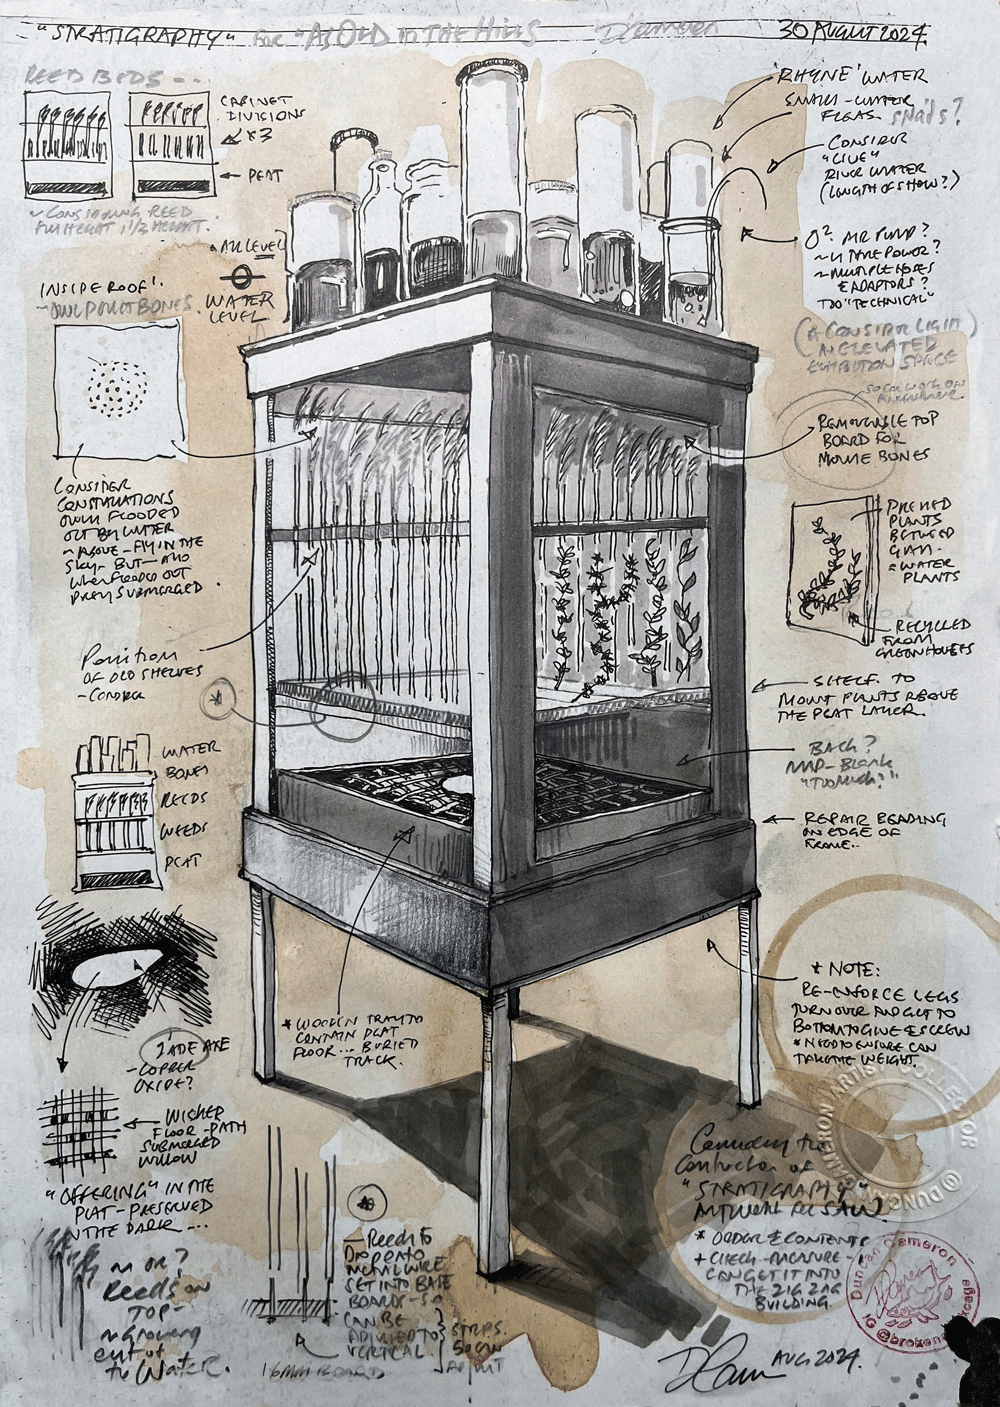 "STRATIGRAPHY" FOR "AS OLD AS THE HILLS" D Cameron 30 AUGUST 2024.
REED BEDS --
CABINET
DIVISIONS
x3
PEAT
~ CONSIDERING REED
FULL HEIGHT 1/3 HEIGHT.
ALL LEVEL
WATER
LEVEL
INSIDE ROOF!
~OWL PELLET BONES.
CONSIDER
CONSTELLATIONS
OWLS FLOODED
OUT BY WATER
~ ABOVE - FLY IN THE
SKY - BUT - ALSO
WHEN FLOODED OUT
PREY SUBMERGED
Position
OF OLD SHELVES
WATER
BONES
REEDS
WEEDS
PEAT
JADE AXE
- COPPER
OXIDE?
WICKER
FLOOR - PATH
SUBMERGED
WILLOW
"OFFERING" IN THE
PEAT - PRESERVED
IN THE DARK ---
~ OR?
Reeds on
TOP -
~ Growing
out of
the Water.
'RHYNE' WATER
SMALL - WATER
FLEAS. SNAILS?
CONSIDER
"LIVE"
RIVER WATER
(LENGTH OF SHOW?)
O². AIR PUMP?
~ MULTIPLE HOSES
& ADAPTORS?
TOO "TECHNICAL"
CONSIDER LIGHT
EXHIBITION SPACE
REMOVABLE TOP
BOARD FOR
MOUSE BONES
PRESSED
PLANTS
BETWEEN
GLASS -
= WATER
PLANTS
RECYCLED
FROM
GREENHOUSES
SHELF. TO
MOUNT PLANTS ABOVE
THE PEAT LAYER.
BACK?
MAP - Blank
"TOO MUCH?"
REPAIR BEADING
ON EDGE OF
FRAME..
* NOTE:
RE-ENFORCE LEGS
TURN OVER AND GET TO
BOTTOM TO GLUE & SCREW
* NEED TO ENSURE CAN
TAKE THE WEIGHT.
* WOODEN TRAY TO
CONTAIN PEAT
FLOOR... BURIED
TRACK.
- Reeds to
DROP ONTO
METAL WIRE
SET INTO BASE
BOARDS - SO
CAN BE
ADJUSTED TO
VERTICAL.
STRIPS.
16MM BOARD
"STRATIGRAPHY"
ARTWORK FOR SAW.
* ORDER & CONTENTS
+ CHECK - MEASURE -
CAN GET IT INTO
THE ZIG ZAG
BUILDING.
AUG 2024.
DUNCAN CAMERON ARTIST & COLLECTOR ©
Duncan Cameron